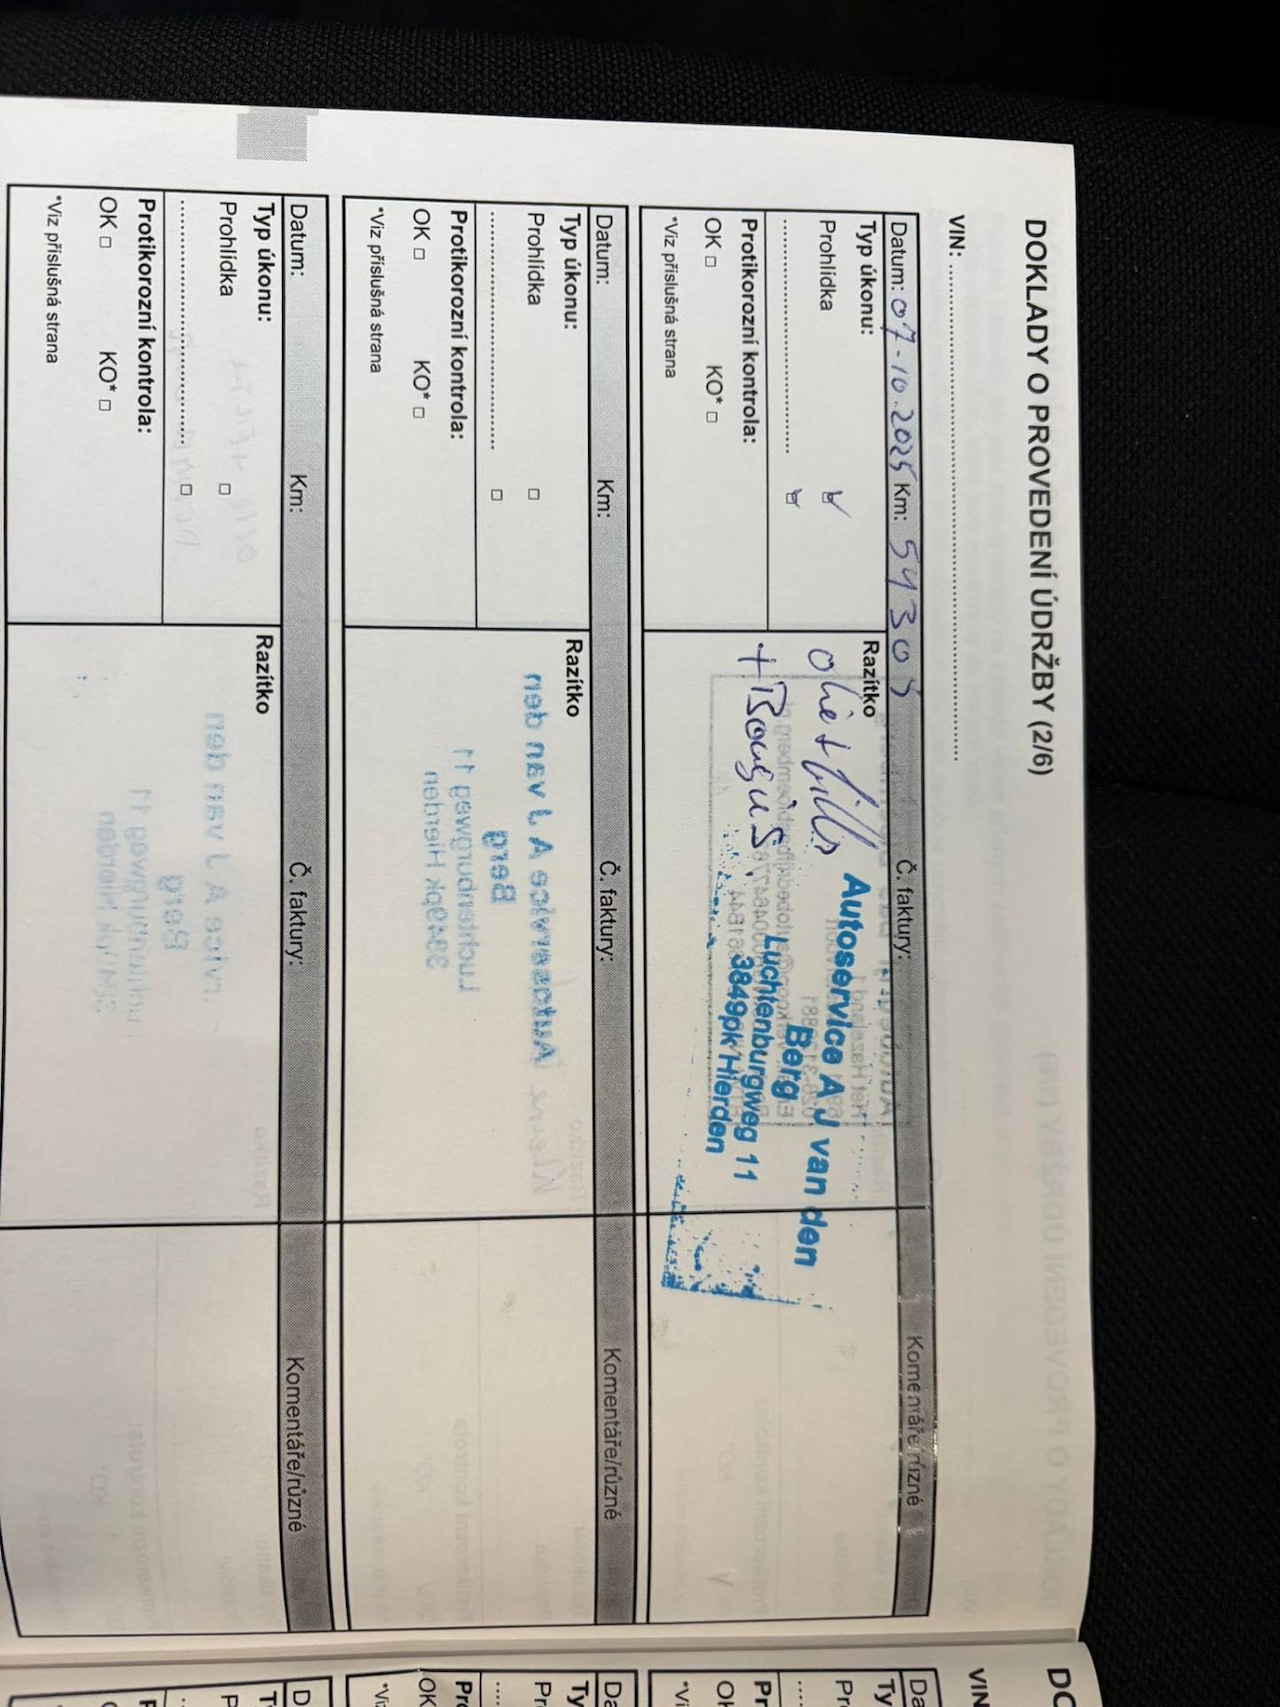 DOKLADY O PROVEDENÍ ÚDRŽBY (2/6)
VIN: ....................................................
Datum: 07-10.2025 Km: 59305 Č. faktury: Komentáře/různé
Typ úkonu:
Prohlídka
Protikorozní kontrola:
OK □ KO* □
*Viz příslušná strana
Razítko
+ Bougus
Autoservice A J van den
Berg
Luchtenburgweg 11
3849pk Hierden
Datum: Km: Č. faktury: Komentáře/různé
Typ úkonu:
Prohlídka □
.......................................... □
Protikorozní kontrola:
OK □ KO* □
*Viz příslušná strana
Razítko
Datum: Km: Č. faktury: Komentáře/různé
Typ úkonu:
Prohlídka □
.......................................... □
Protikorozní kontrola:
OK □ KO* □
*Viz příslušná strana
Razítko